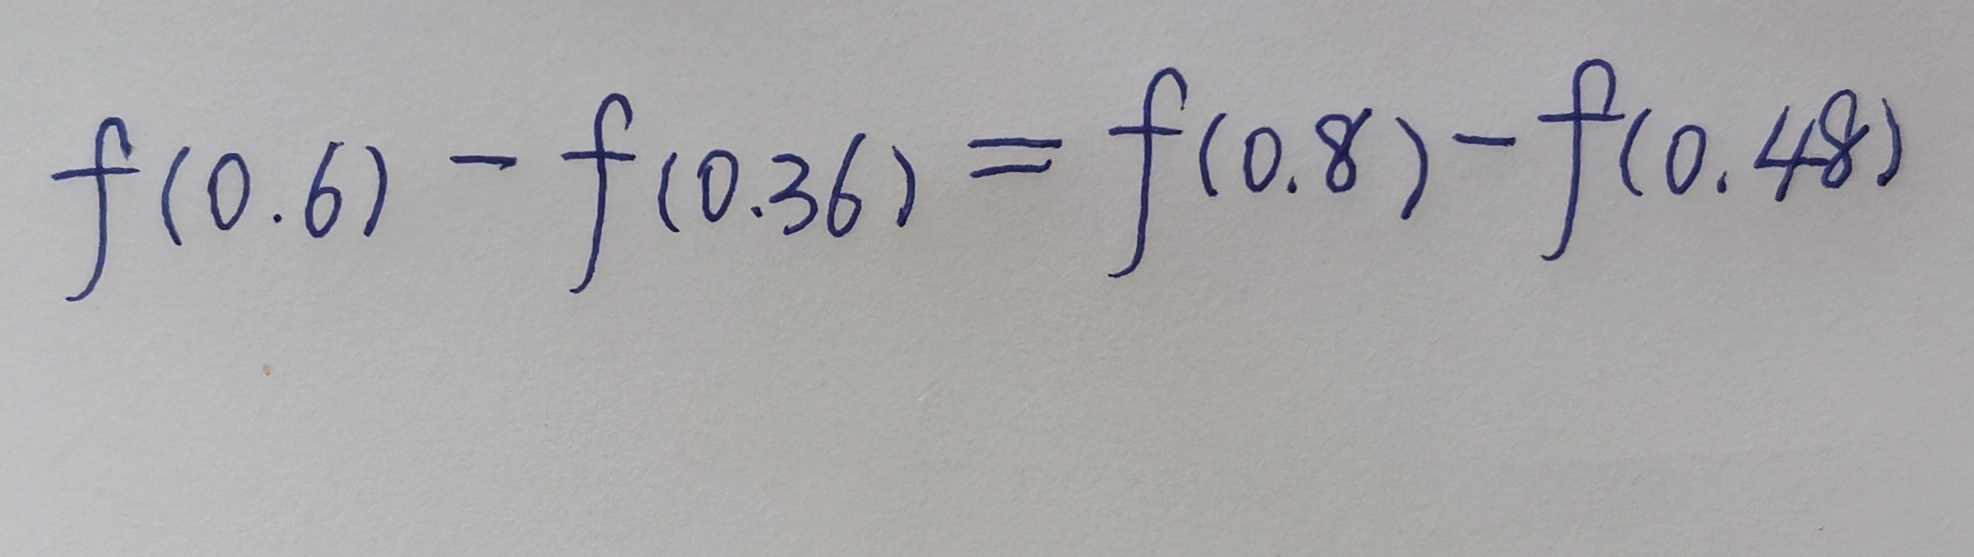 f(0.6) - f(0.36) = f(0.8) - f(0.48)